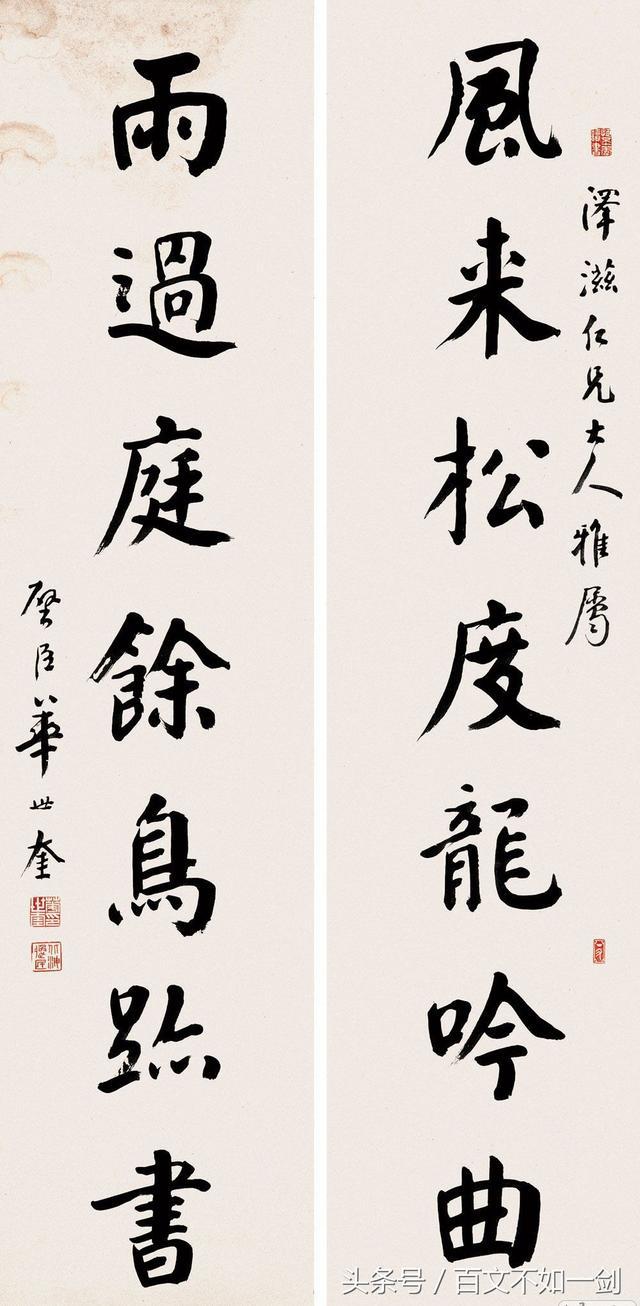 澤滋仁兄大人雅屬
風来松度龍吟曲
雨過庭餘鳥跡書
壁臣華世奎
头条号 / 百文不如一剑